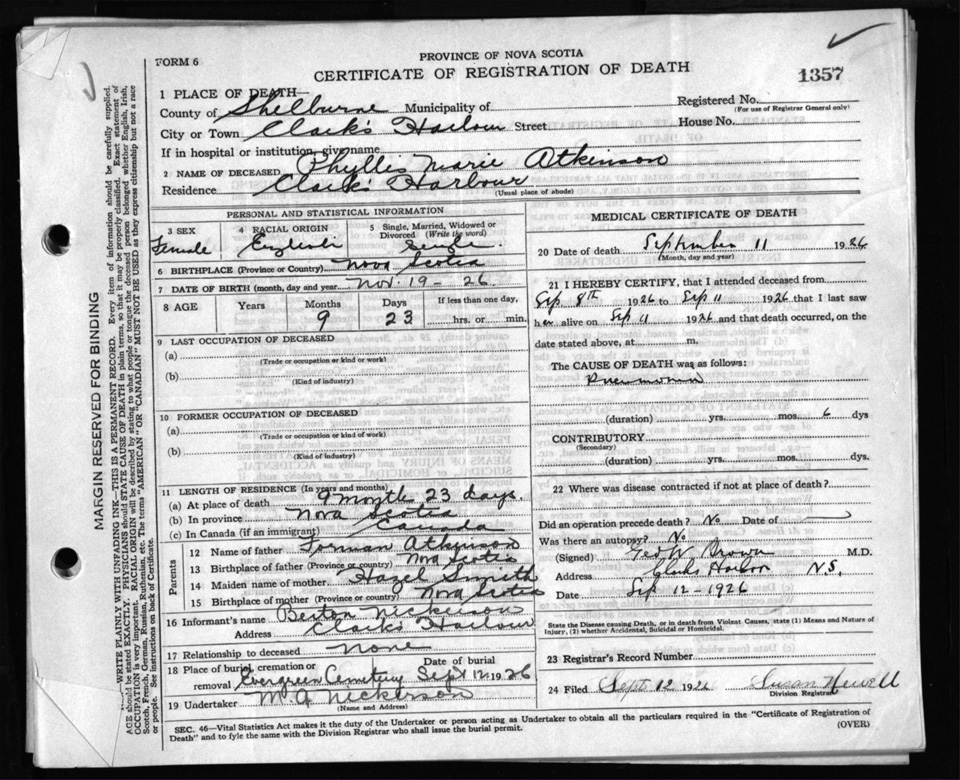 FORM 6
PROVINCE OF NOVA SCOTIA
CERTIFICATE OF REGISTRATION OF DEATH
1357
1 PLACE OF DEATH—
County of Shelburne Municipality of
Registered No.
(For use of Registrar General only)
City or Town Clark's Harbour Street
House No.
If in hospital or institution, give name
2 NAME OF DECEASED Phyllis Marie Atkinson
Residence Clark's Harbour
(Usual place of abode)
PERSONAL AND STATISTICAL INFORMATION
3 SEX Female
4 RACIAL ORIGIN English
5 Single, Married, Widowed or Divorced (Write the word) Single
6 BIRTHPLACE (Province or Country) Nova Scotia
7 DATE OF BIRTH (month, day and year) Nov. 19 - 26.
8 AGE Years Months Days If less than one day,
9 23 hrs. or min.
9 LAST OCCUPATION OF DECEASED
(a)
(Trade or occupation or kind or work)
(b)
(Kind of industry)
10 FORMER OCCUPATION OF DECEASED
(a)
(Trade or occupation or kind of work)
(b)
(Kind of industry)
11 LENGTH OF RESIDENCE (In years and months)
(a) At place of death 9 months 23 days.
(b) In province Nova Scotia
(c) In Canada (if an immigrant) Canada
Parents
12 Name of father Forman Atkinson
13 Birthplace of father (Province or country) Nova Scotia
14 Maiden name of mother Hazel Smith
15 Birthplace of mother (Province or country) Nova Scotia
16 Informant's name Nickerson
Address Clark's Harbour
17 Relationship to deceased None
18 Place of burial, cremation or removal Evergreen Cemetery Date of burial Sept 12 1926
19 Undertaker M. A. Nickerson
(Name and Address)
MEDICAL CERTIFICATE OF DEATH
20 Date of death September 11 1926
(Month, day and year)
21 I HEREBY CERTIFY, that I attended deceased from
Sep 8th 1926 to Sep 11 1926 that I last saw
her alive on Sep 11 1926 and that death occurred, on the
date stated above, at m.
The CAUSE OF DEATH was as follows:
Pneumonia
(duration) yrs. mos. 6 dys
CONTRIBUTORY
(Secondary)
(duration) yrs. mos. dys
22 Where was disease contracted if not at place of death?
Did an operation precede death? No Date of
Was there an autopsy? No
(Signed) Geo W Brown M.D.
Address Clarks Harbor N.S.
Date Sep 12 - 1926
State the Disease causing Death, or in death from Violent Causes, state (1) Means and Nature of
Injury, (2) whether Accidental, Suicidal or Homicidal.
23 Registrar's Record Number
24 Filed Sept. 12 1926 Susan Newell
Division Registrar
SEC. 46—Vital Statistics Act makes it the duty of the Undertaker or person acting as Undertaker to obtain all the particulars required in the "Certificate of Registration of
Death" and to fyle the same with the Division Registrar who shall issue the burial permit.
(OVER)
MARGIN RESERVED FOR BINDING
WRITE PLAINLY WITH UNFADING INK—THIS IS A PERMANENT RECORD. Every item of information should be carefully supplied.
AGE should be stated EXACTLY. PHYSICIANS should STATE CAUSE OF DEATH in plain terms, so that it may be properly classified. Exact statement of
OCCUPATION is very important. RACIAL ORIGIN will be described by stating to what people or tongue the deceased person belonged whether English, Irish,
Scotch, French, German, Russian, Ruthenian, etc. The terms "AMERICAN" OR "CANADIAN" MUST NOT BE USED as they express citizenship but not a race
or people. See instructions on back of Certificate.